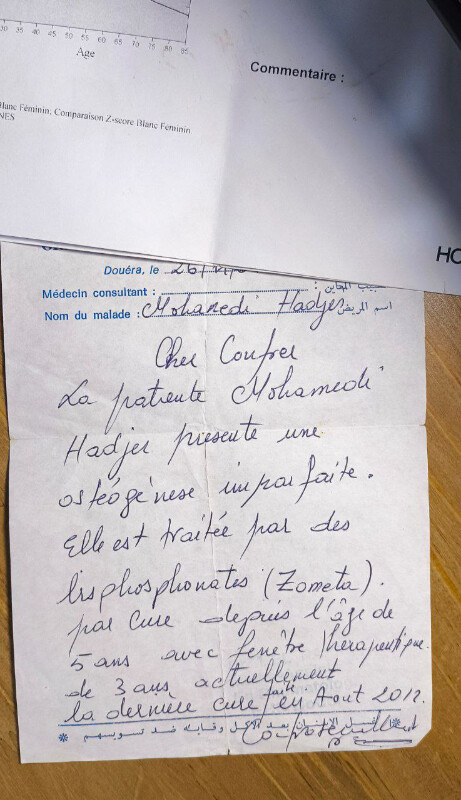 30 35 40 45 50 55 60 65 70 75 80 85
Age
Commentaire :
Blanc Féminin; Comparaison Z-score Blanc Feminin
NES
HO
Douéra, le 26
Médecin consultant :
Nom du malade : Mohamedi Hadjer اسم المريض
Cher Confrer
La patiente Mohamedi
Hadjer présente une
ostéogénèse imparfaite.
Elle est traitée par des
bisphosphonates (Zometa).
par cure depuis l'âge de
5 ans avec fenêtre thérapeutique
de 3 ans actuellement
la dernière cure faite en Aout 2012.